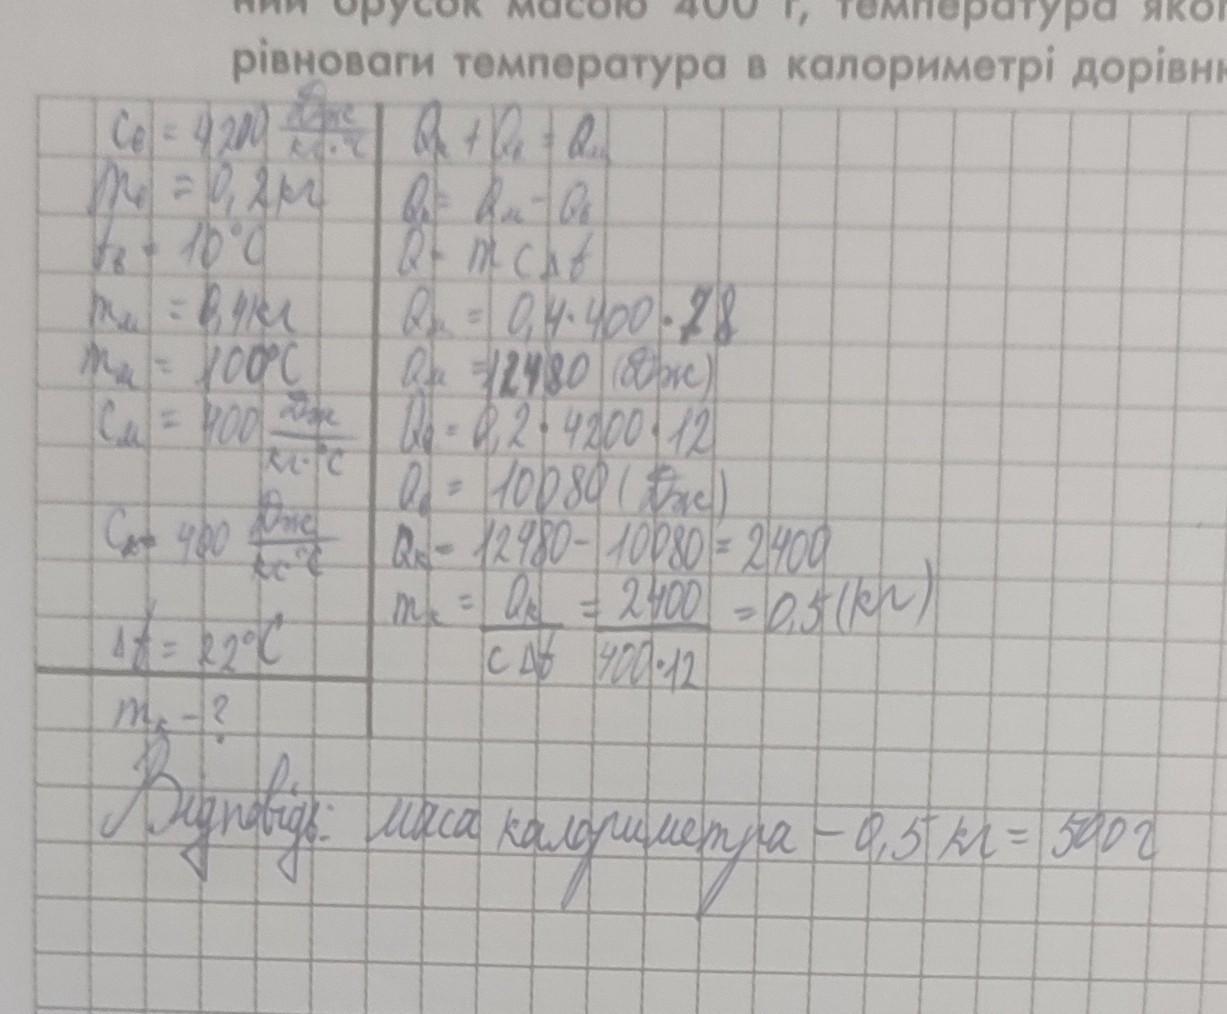 ний брусок масою 400 г, температура яко
рівноваги температура в калориметрі дорівн
cв = 4200 Дж/кг·°C
mв = 0,2 кг
tв = 10°C
mм = 0,4 кг
mм = 100°C
cм = 400 Дж/кг·°C
cк = 400 Дж/кг°C
Δt = 22°C
mк - ?
Qк + Qв = Qм
Qк = Qм - Qв
Q = mcΔt
Qм = 0,4·400·78
Qм = 12480 (Дж)
Qв = 0,2·4200·12
Qв = 10080 (Дж)
Qк = 12480 - 10080 = 2400
mк = Qк/cΔt = 2400/400·12 = 0,5 (кг)
Відповідь: маса калориметра – 0,5 кг = 500 г